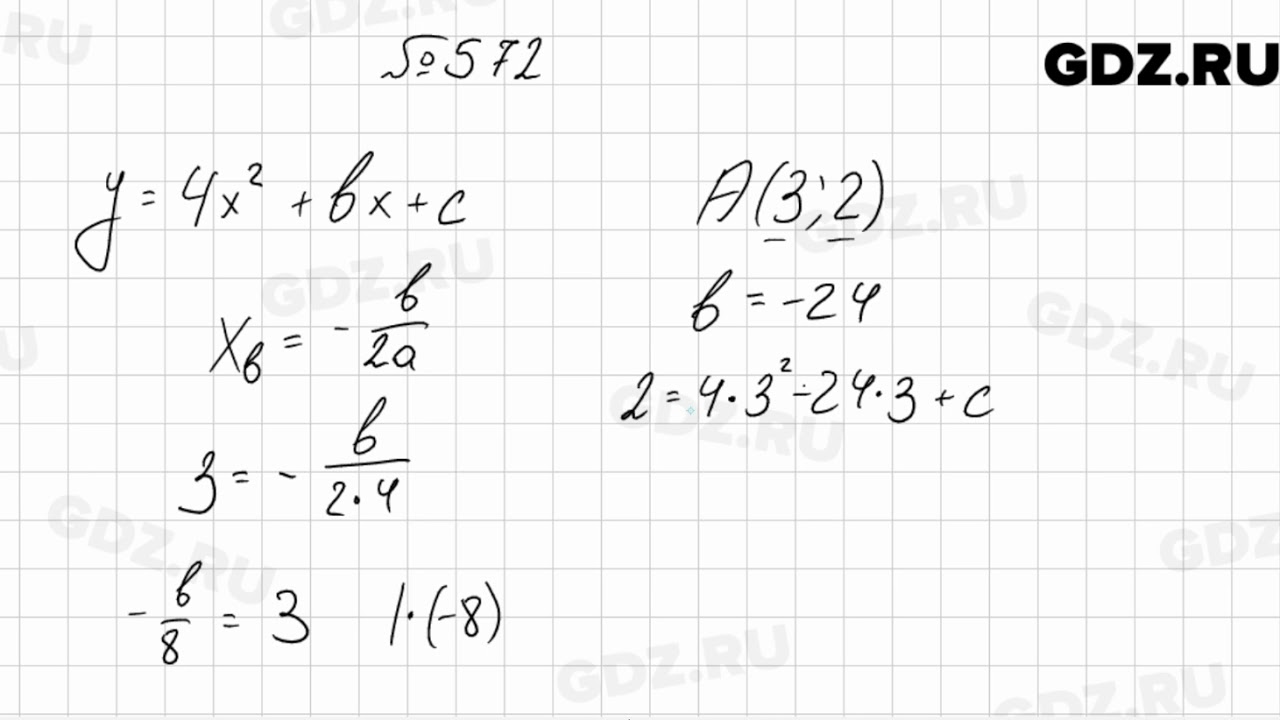 №572
GDZ.RU
y = 4x² + bx + c
x_в = - b/2a
3 = - b/2·4
- b/8 = 3 |·(-8)
A(3; 2)
b = -24
2 = 4·3² - 24·3 + c